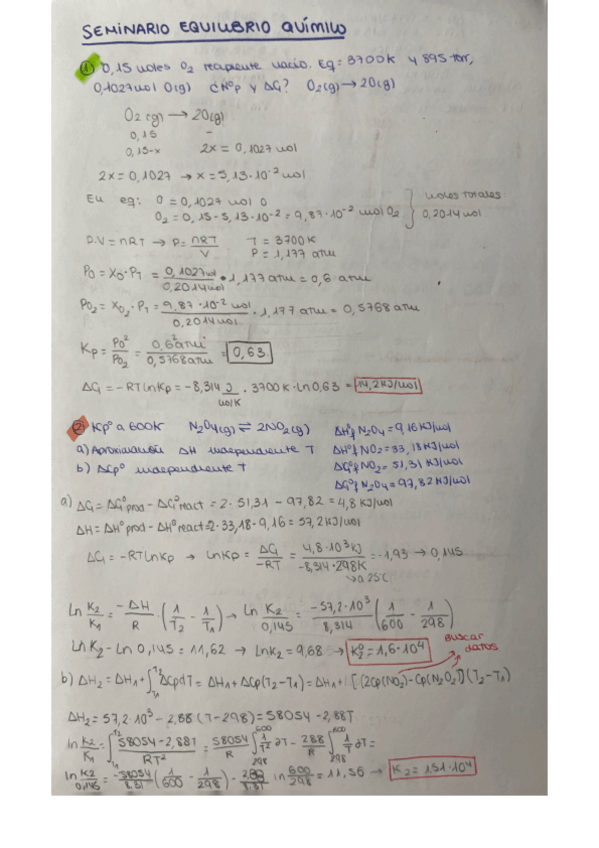 SEMINARIO EQUILIBRIO QUÍMICO
1) 0,15 moles O₂ recipiente vacío. Eq = 3700K y 895 torr,
0,1027 mol O(g) ¿K°p y ΔG? O₂(g) → 2O(g)
O₂(g) → 2O(g)
0,15 -
0,15-x 2x = 0,1027 mol
2x = 0,1027 → x = 5,13·10⁻² mol
En eq: O = 0,1027 mol O
O₂ = 0,15 - 5,13·10⁻² = 9,87·10⁻² mol O₂
moles totales: 0,2014 mol
P.V = nRT → P = nRT/V T = 3700K
P = 1,177 atm
PO = XO·PT = 0,1027 mol/0,2014 mol · 1,177 atm = 0,6 atm
PO₂ = XO₂·PT = 9,87·10⁻² mol/0,2014 mol · 1,177 atm = 0,5768 atm
Kp = PO²/PO₂ = 0,6² atm/0,5768 atm = 0,63
ΔG = -RT ln Kp = -8,314 J/mol K · 3700K · ln 0,63 = 14,2 KJ/mol
2) Kp° a 600K N₂O₄(g) ⇌ 2NO₂(g) ΔH°f N₂O₄ = 9,16 KJ/mol
a) Aproximación ΔH independiente T ΔH°f NO₂ = 33,18 KJ/mol
b) ΔCp° independiente T ΔG°f NO₂ = 51,31 KJ/mol
ΔG°f N₂O₄ = 97,82 KJ/mol
a) ΔG = ΔG°prod - ΔG°react = 2·51,31 - 97,82 = 4,8 KJ/mol
ΔH = ΔH°prod - ΔH°react = 2·33,18 - 9,16 = 57,2 KJ/mol
ΔG = -RT ln Kp → ln Kp = ΔG/-RT = 4,8·10³ KJ/-8,314·298K = -1,93 → 0,145
↳ a 25°C
ln K₂/K₁ = -ΔH/R · (1/T₂ - 1/T₁) → ln K₂/0,145 = -57,2·10³/8,314 (1/600 - 1/298)
ln K₂ - ln 0,145 = 11,62 → ln K₂ = 9,68 → K₂° = 1,6·10⁴
buscar datos
b) ΔH₂ = ΔH₁ + ∫ΔCp dT = ΔH₁ + ΔCp(T₂-T₁) = ΔH₁ + [(2Cp(NO₂) - Cp(N₂O₄)](T₂-T₁)
ΔH₂ = 57,2·10³ - 2,88 (T-298) = 58054 - 2,88T
ln K₂/K₁ = ∫ 58054 - 2,88T/RT² = 58054/R ∫₂₉₈⁶⁰⁰ 1/T² dT - 2,88/R ∫₂₉₈⁶⁰⁰ 1/T dT =
ln K₂/0,145 = -58054/8,31 (1/600 - 1/298) - 2,88/8,31 ln 600/298 = 11,56 → K₂ = 1,51·10⁴